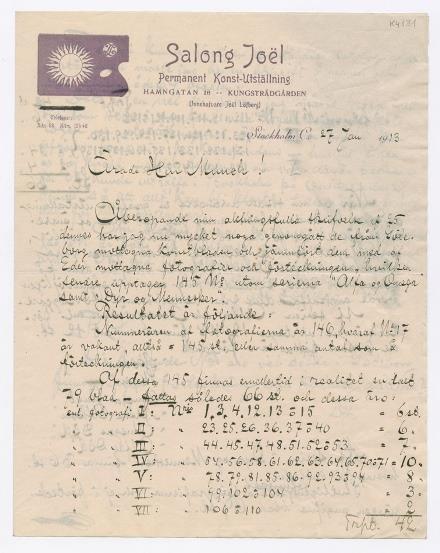 K4131
Salong Joël
Permanent Konst-Utställning
HAMNGATAN 16 -- KUNGSTRÄDGÅRDEN
(Innehafvare Joël Löfberg)
Stockholm C. 27 Jan 1913
Ärade Herr Munch!
Åberopande min aktningsfulla skrivelse af 25
dennes har jag nu mycket noga genomgått de från
borg mottagna Konstbladen och jämfört dem med af
Eder mottagna fotografier och förteckningen, hvilken
senare upptager 145 No utom serierna "Alfa og Omega"
samt Dyr og Mennesker.
Resultatet är följande:
Numreraren af fotografierna är 146, hvaraf No
är vakant, alltså = 145 st, eller samma antal som i
förteckningen.
Af dessa 145 finnas emellertid i realitet endast
79 blad - fattas således 66 st. och dessa äro:
enl. fotografi I: Nris 1, 3, 4, 12, 13 o 15 = 6 st.
" II: " 23, 25, 26, 36, 37 o 40 = 6.
" III: " 44, 45, 47, 48, 51, 52 o 53 = 7.
" IV: " 54, 56, 58, 61, 62, 63, 64, 65, 70 o 71 = 10.
" V: " 78, 79, 81, 85, 86, 92, 93 o 94 = 8.
" VI: " 99, 102 o 104 = 3.
" VII: " 106 o 110 = 2
Trspt. 42